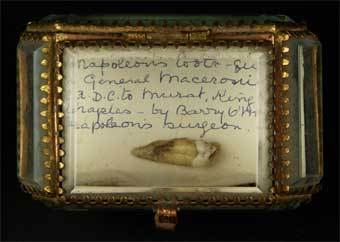 napoleons tooth - gi
General Maceroni
A.D.C. to Murat, King
naples - by Barry O'M
napoleons surgeon